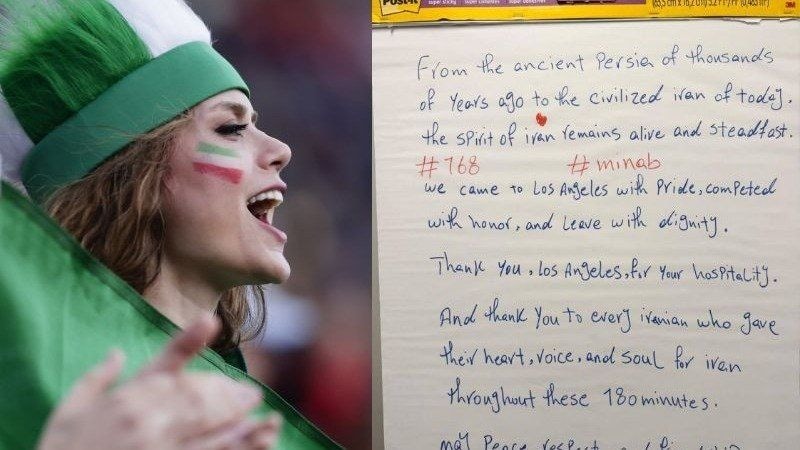 Post-it
super sticky super adhesivas super collantes
From the ancient Persia of thousands
of years ago to the civilized iran of today.
the spirit of iran remains alive and steadfast.
#168 #minab
we came to Los Angeles with Pride, competed
with honor, and Leave with dignity.
Thank you, Los Angeles, for your hospitality.
And thank you to every iranian who gave
their heart, voice, and soul for iran
throughout these 180 minutes.
may Peace, respect